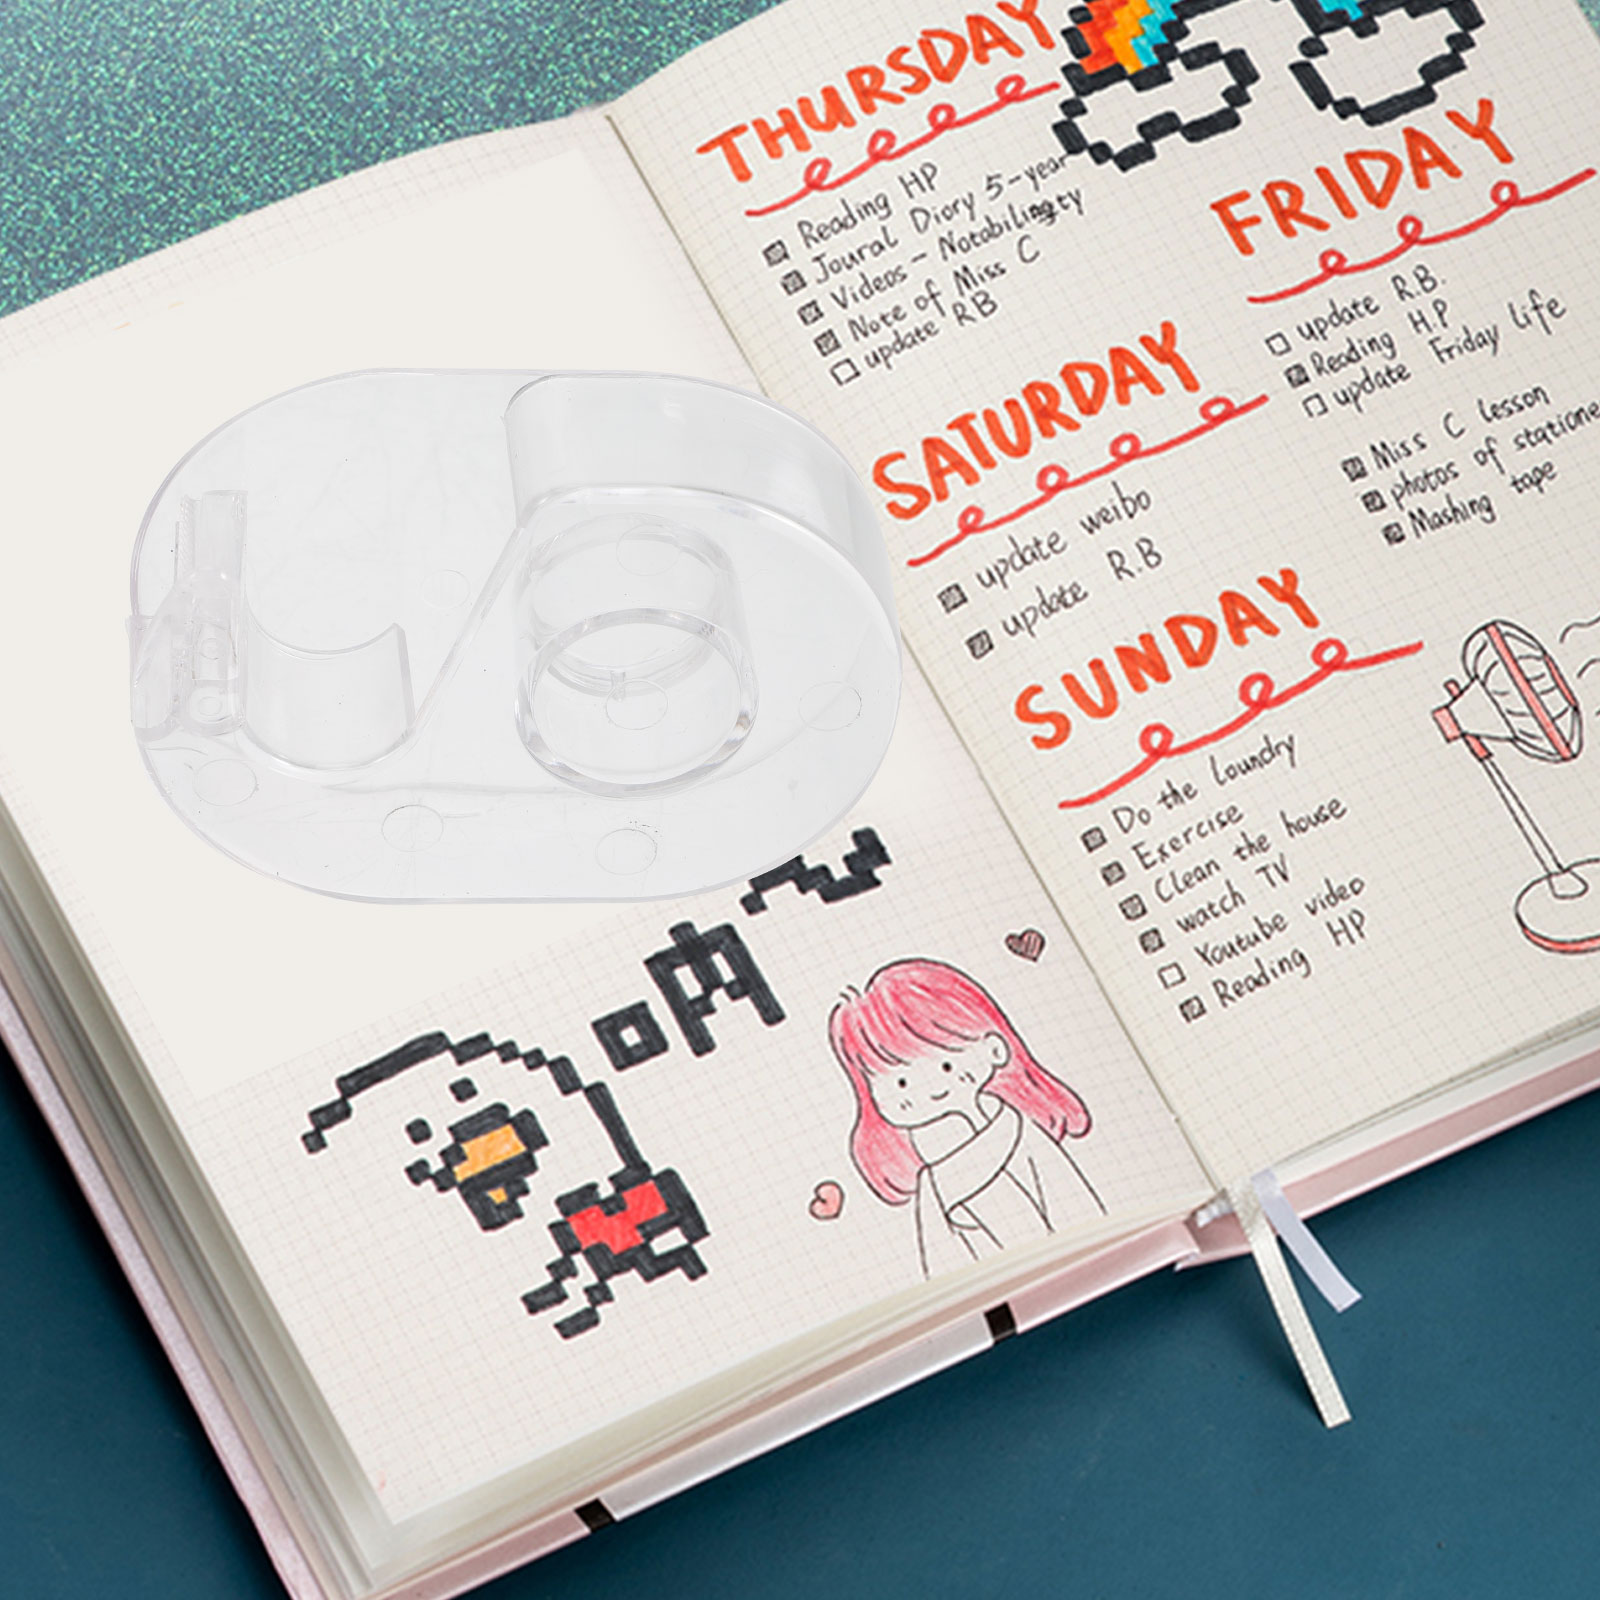 THURSDAY
Reading HP
Joural Diory 5-year
Videos - Notabilingty
Note of Miss C
update RB
FRIDAY
update R.B.
Reading H.P
update Friday life
Miss C lesson
photos of statione
Mashing tape
SATURDAY
update weibo
update R.B
SUNDAY
Do the loundry
Exercise
Clean the house
watch TV
Youtube video
Reading HP